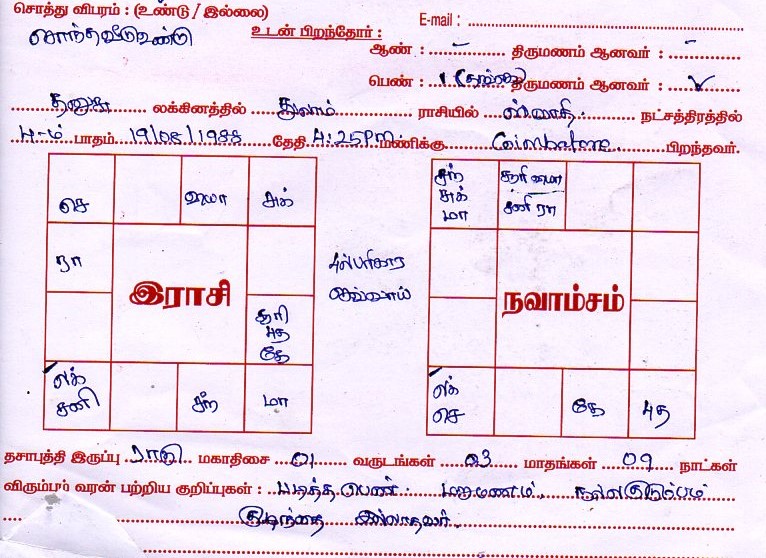 சொத்து விபரம் : (உண்டு / இல்லை) E-mail :
சொந்தவீடு உண்டு உடன் பிறந்தோர் : ஆண் : - திருமணம் ஆனவர் : -
பெண் : 1 (தங்கை) திருமணம் ஆனவர் :
தனுசு லக்கினத்தில் துலாம் ராசியில் ஸ்வாதி நட்சத்திரத்தில்
4-ம் பாதம் 19/08/1988 தேதி 4:25PM மணிக்கு Coimbatore பிறந்தவர்.
செ வ்யா சுக்
ரா
இராசி
சூரி
புத
கே
லக்
சனி
சந்
மா
பரிகார
செவ்வாய்
சந்
சுக்
மா
சூரி வ்யா
சனி ரா
நவாம்சம்
லக்
செ
கே
புத
தசாபுத்தி இருப்பு ராகு மகாதிசை 01 வருடங்கள் 03 மாதங்கள் 09 நாட்கள்
விரும்பும் வரன் பற்றிய குறிப்புகள் : படித்த பெண். மறுமணம், நல்லகுடும்பம்
குழந்தை இல்லாதவர்.